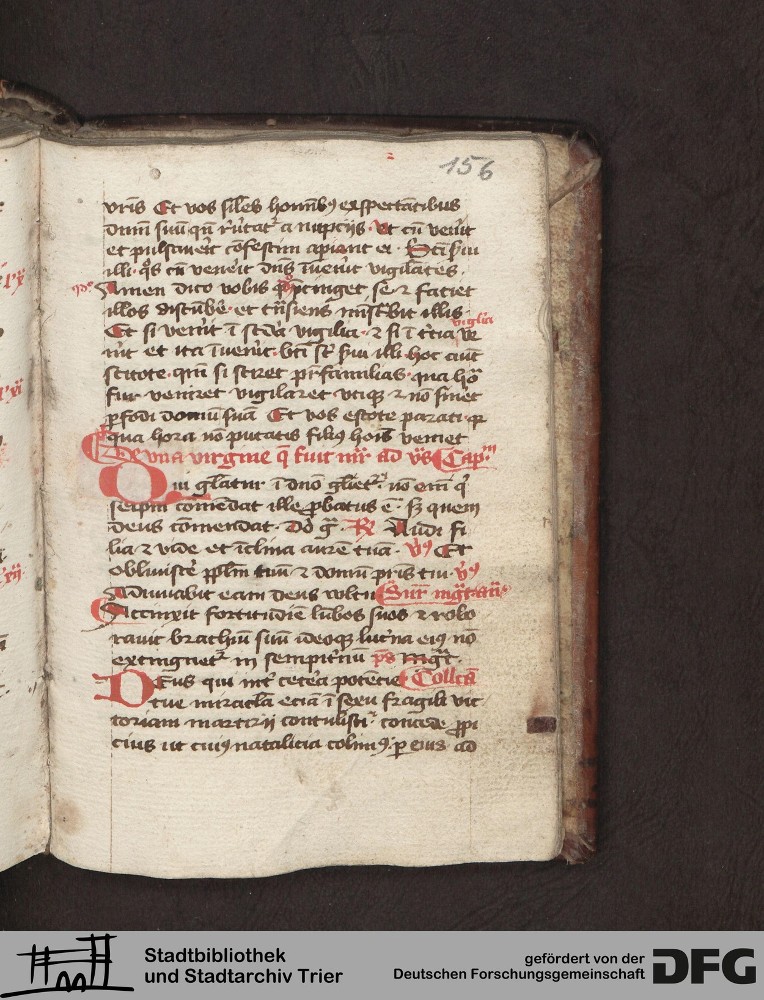 156
vr̄is Et vos sil̄es homīb⁹ exspectātibus
dnm̄ suū qn̄ r̄u̾tat᷑ a nupcijs ut cū ven̾it
et pulsauer̾it cōfestim apiant ei Bt̄i s̾ui
illi q̄s cū vener̾it dn̄s īuen̾it vigilātes
Amen dico vobis pcinget se ⁊ faciet
illos discūbe̾ et trn̄siens mīst̾bit illis
Et si ven̾it ī scd̄a vigilia ⁊ si ī t̾cia vigilia ve
n̾it et ita īuen̾it bt̄i st̄ s̾ui illi hoc aut̄
scitote qm̄ si sciret pr̄familias qua ho᷑
fur veniret vigilaret vtiqꝫ ⁊ nō sin̾et
ꝑfodi domū suā Et vos estote parati q
qua hora nō putatis fili⁹ hoīs veniet
De vna virgine q̄ fuit mr̄ ad vs̄ Cap.m
Qui gl̄atur ī dno gl̄iet᷑ nō em̄ q
seip̄m comēdat ille ꝓbatus ē sꝫ quem
deus cōmendat Do g̾ R̷ Audi fi
lia ⁊ vide et īclina aurē tuā v̾s Et
obliuisce̾ ppl̄m tuū ⁊ domū pr̄is tui v̾s
Adiuuabit eam deus vultu Sup̄ mg̾tan̄
Accinxit fortitudīe lūbos suos ⁊ robo
rauit brachiū suū ideoqꝫ luc̾na ei⁹ nō
extinguet᷑ in sempit̾nū ps̄ Mgt̄
Deus qui int̾ cete̾a potēcie Coll̄cā
tue miracl̄a eciā ī sexu fragili vic
toriam martirij contulisti concede ꝓpi
cius ut cui⁹ natalicia colim⁹ ꝑ eius ad
Stadtbibliothek
und Stadtarchiv Trier
gefördert von der
Deutschen Forschungsgemeinschaft
DFG